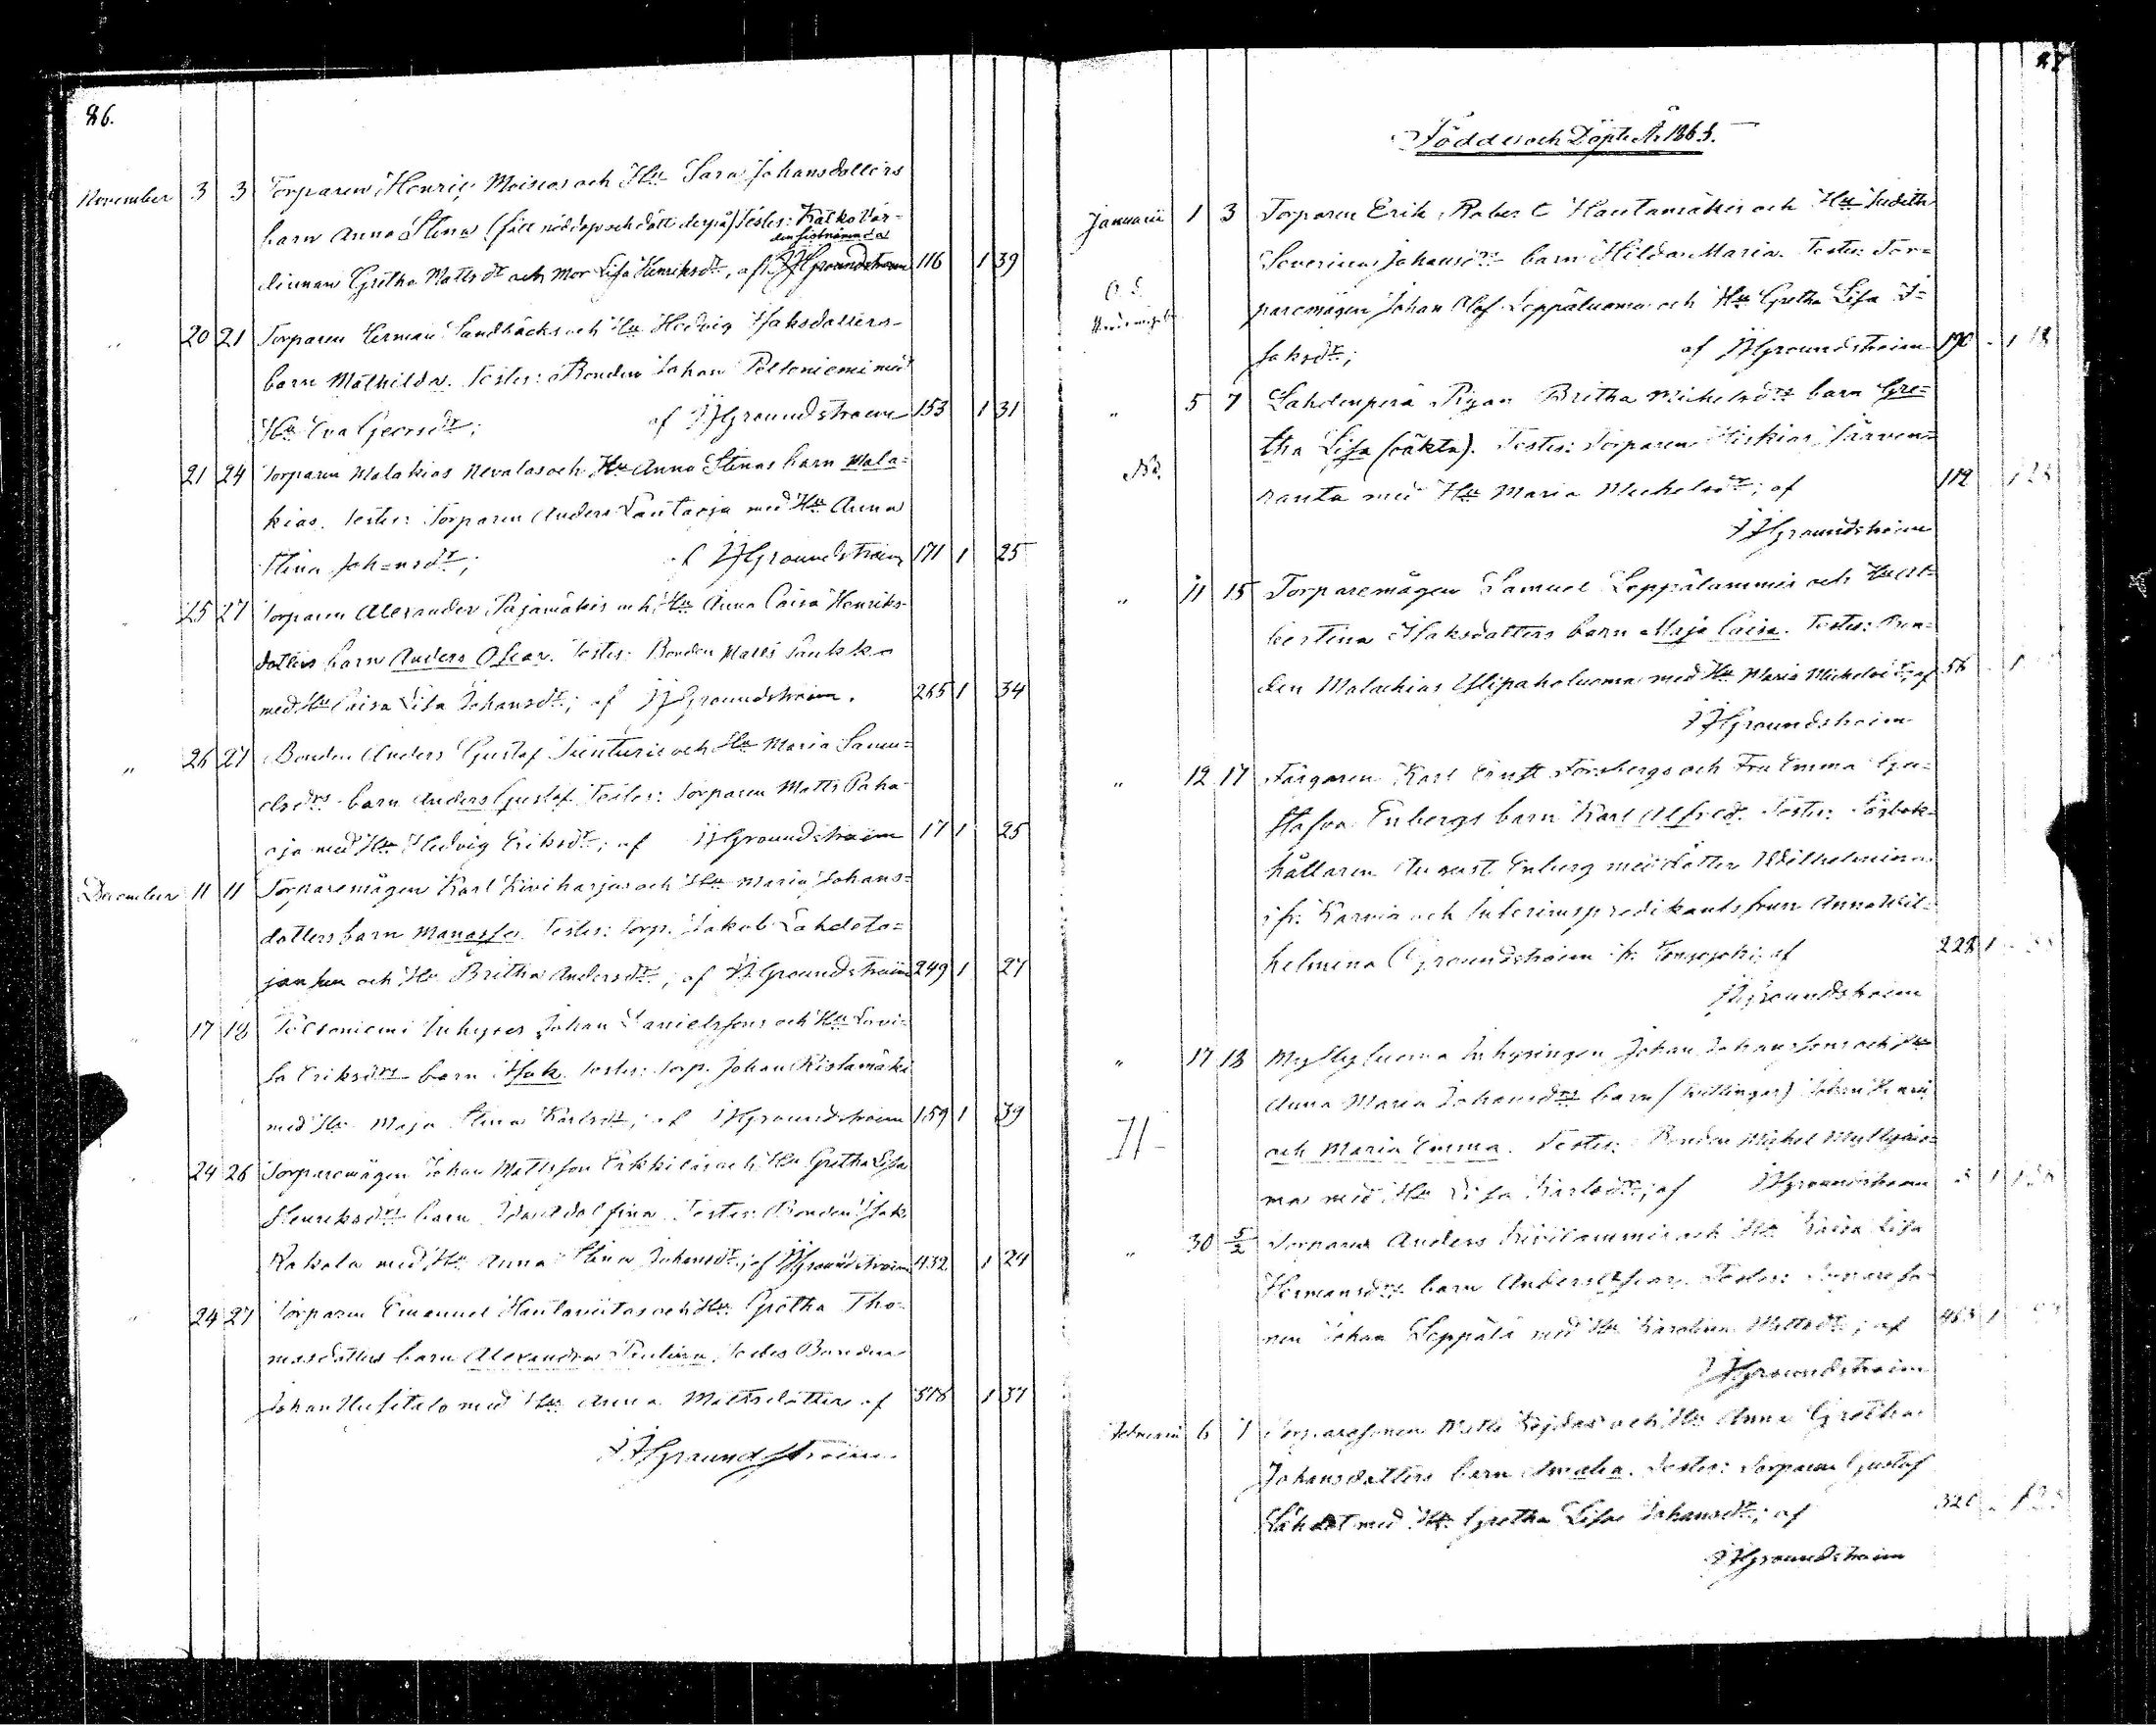 86.
November 3 3 Torparen Henric Moisios och Hu Sara Johansdotters
barn Anna Stina (fått nöddop och dött derpå) Testes: Kätkovär-
den sistnämnda
dinnan Gretha Mattsdr och Mor Lisa Henriksdr, af JHGroundstroem 116 1 39
" 20 21 Torparen Herman Sandbacks och Hu Hedvig Isaksdotters
barn Mathilda. Testes: Bonden Johan Peltoniemi med
Hu Eva Georsdr; af JHGroundstroem 153 1 31
21 24 Torparen Malakias Nevalas och Hu Anna Stinas barn Mala=
kias. Testes: Torparen Anders Lautaoja med Hu Anna
Stina Johansdr; af JHGroundstroem 171 1 25
" 25 27 Torparen Alexander Pajamäkis och Hu Anna Caisa Henriks-
dotters barn Anders Oscar. Testes: Bonden Matts
med Hu Caisa Lisa Johansdr; af JHGroundstroem. 265 1 34
" 26 27 Bonden Anders Gustaf och Hu Maria Samu=
elsdrs barn Anders Gustaf. Testes: Torparen Matts Paha-
oja med Hu Hedvig Eriksdr; af JHGroundstroem 17 1 25
December 11 11 Torparemågen Karl Kiviharjus och Hu Maria Johans=
dotters barn Manasse. Testes: Torp. Jakob Lahdeto=
jan och Hu Britha Andersdr; af JHGroundstroem 249 1 27
" 17 18 Peltoniemi Inhyses Johan Danielssons och Hu Lovi=
sa Eriksdrs barn Isak. Testes: Torp. Johan Ristamäki
med Hu Maja Stina Karlsdr; af JHGroundstroem 159 1 39
" 24 26 Torparemågen Johan Mattsson Erkkiläs och Hu Gretha Lisa
Henriksdrs barn Ida Adolfina. Testes: Bonden Isak
Rakola med Hu Anna Stina Johansdr; af JHGroundstroem 432 1 24
" 24 27 Torparen Emanuel Hautaviitas och Hu Gretha Tho-
masdotters barn Alexandra Paulina. Testes Bonden
Johan Uusitalo med Hu Anna Mattsdotter af 578 1 37
JHGroundstroem.
87
Födde och Döpte År 1865.
Januarii 1 3 Torparen Erik Robert Hautamäkis och Hu Judith
Severina Johansdrs barn Hilda Maria. Testes: Tor=
paremågen Johan Olof Leppäluoma och Hu Gretha Lisa I=
saksdr; af JHGroundstroem 190 1 18
" 5 7 Lahdenperä Pigan Britha Michelsdrs barn Gre=
tha Lisa (oäkta). Testes: Torparen Hiskias Järven=
No.
ranta med Hu Maria Michelsdr; af 112 1 28
JHGroundstroem
" 11 15 Torparemågen Samuel Leppälammis och Hu Al=
bertina Isaksdotters barn Maja Caisa. Testes: Bon=
den Malachias Ylipaholuoma med Hu Maria Michelsdr; af 56 1
JHGroundstroem
" 12 17 Färgaren Karl Ernst Forsbergs och Fru Emma Gu=
stafva Enbergs barn Karl Alfred. Testes:
hållaren August Enberg med dotter Wilhelmina
ifr: Karvia och Interimspredikantsfrun Anna Wil=
helmina Groundstroem fr. af 228 1
JHGroundstroem
" 17 18 Myllyluoma Inhysingen Johan Johanssons och Hu
Anna Maria Johansdrs barn (Tvillingar) Johan
II-
och Maria Emma. Testes: Bonden Michel Myllyluo=
ma med Hu Lisa Karlsdr; af JHGroundstroem
" 30 5/2 Torparen Anders Kivilammis och Hu Caisa Lisa
Hermansdrs barn Anders Oscar. Testes: Torpareso-
nen Johan Leppälä med Hu Karolina Mattsdr; af 463 1
JHGroundstroem
Februarii 6 7 Torparesonen Matts och Hu Anna Gretha
Johansdotters barn Amalia. Testes: Torparen Gustaf
med Hu Gretha Lisa Johansdr; af 320
JHGroundstroem